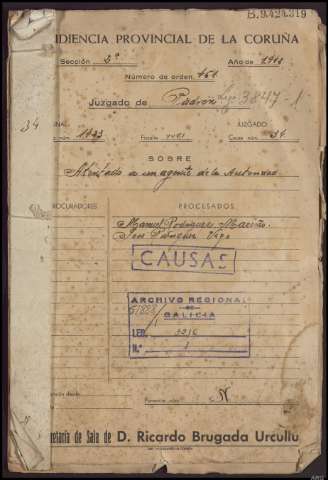 B.9.424.319
DIENCIA PROVINCIAL DE LA CORUÑA
Sección 2ª Año de 1940
Número de orden, 151
Juzgado de Padrón Leg 3847-1
34
NAL JUZGADO
núm. 1433 Fiscalía núm. Causa núm. 34
SOBRE
Atentado a un agente de la Autoridad
ROCURADORES PROCESADOS
Manuel Rodríguez Mariño
CAUSAS
ARCHIVO REGIONAL
DE
GALICIA
51828/
LEG.
N.º 1
cretaría de Sala de D. Ricardo Brugada Urcullu